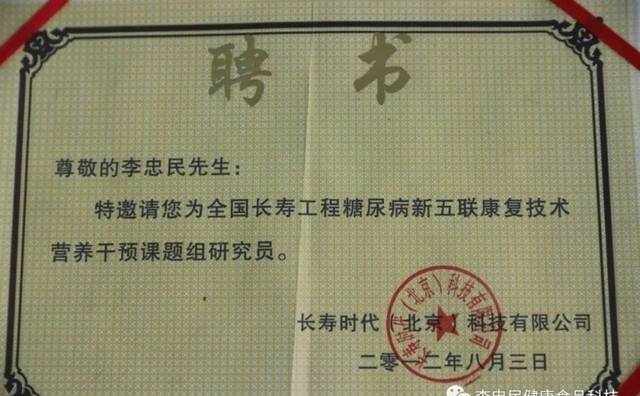 聘书
尊敬的李忠民先生：
特邀请您为全国长寿工程糖尿病新五联康复技术
营养干预课题组研究员。
长寿时代（北京）科技有限公司
二零一二年八月三日
长寿时代（北京）科技有限公司
李忠民健康食品科技